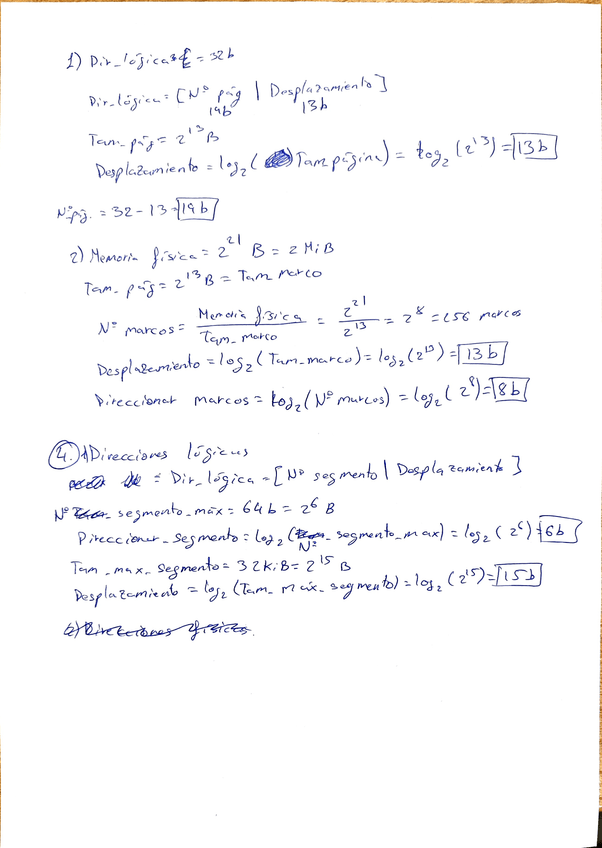 1) Dir_lógica = 32b
Dir_lógica = [Nº pág | Desplazamiento]
19b 13b
Tam_pág = 2^13 B
Desplazamiento = log₂( Tam página) = log₂(2^13) = 13b
Nº pág. = 32 - 13 = 19b
2) Memoria física = 2^21 B = 2 MiB
Tam_pág = 2^13 B = Tam marco
Nº marcos = Memoria física / Tam_marco = 2^21 / 2^13 = 2^8 = 256 marcos
Desplazamiento = log₂(Tam_marco) = log₂(2^13) = 13b
Direccionar marcos = log₂(Nº marcos) = log₂(2^8) = 8b
4. 1) Direcciones lógicas
= Dir_lógica = [Nº segmento | Desplazamiento]
Nº segmento_máx = 64b = 2^6 B
Direccionar_segmento = log₂(Nº_segmento_max) = log₂(2^6) = 6b
Tam_max_segmento = 32KiB = 2^15 B
Desplazamiento = log₂(Tam_máx_segmento) = log₂(2^15) = 15b
2) Direcciones físicas.